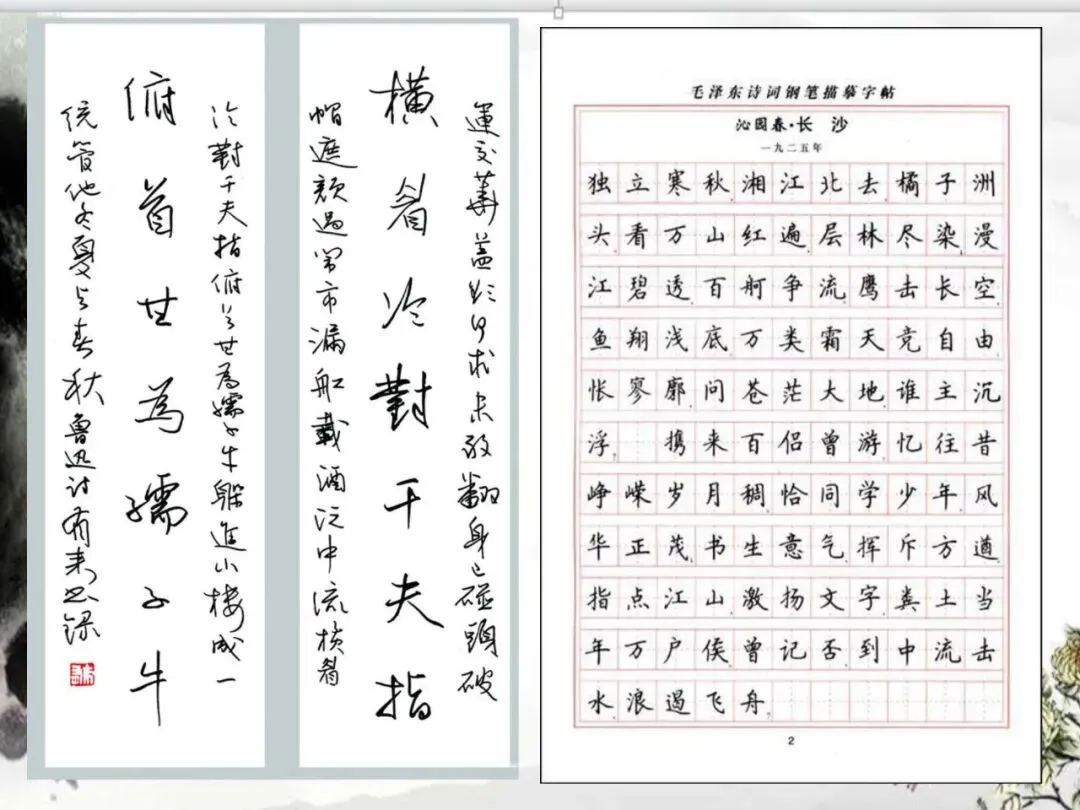 運交華蓋欲何求未敢翻身已碰頭破
橫眉冷對千夫指
帽遮颜過闹市漏船載酒泛中流横眉
冷對千夫指俯首甘為孺子牛躲進小楼成一
俯首甘為孺子牛
统管他冬夏与春秋鲁迅诗
毛泽东诗词钢笔描摹字帖
沁园春·长 沙
一九二五年
独立寒秋,湘江北去,橘子洲
头。看万山红遍,层林尽染;漫
江碧透,百舸争流。鹰击长空,
鱼翔浅底,万类霜天竞自由。
怅寥廓,问苍茫大地,谁主沉
浮? 携来百侣曾游。忆往昔
峥嵘岁月稠。恰同学少年,风
华正茂;书生意气,挥斥方遒。
指点江山,激扬文字,粪土当
年万户侯。曾记否,到中流击
水,浪遏飞舟?
2